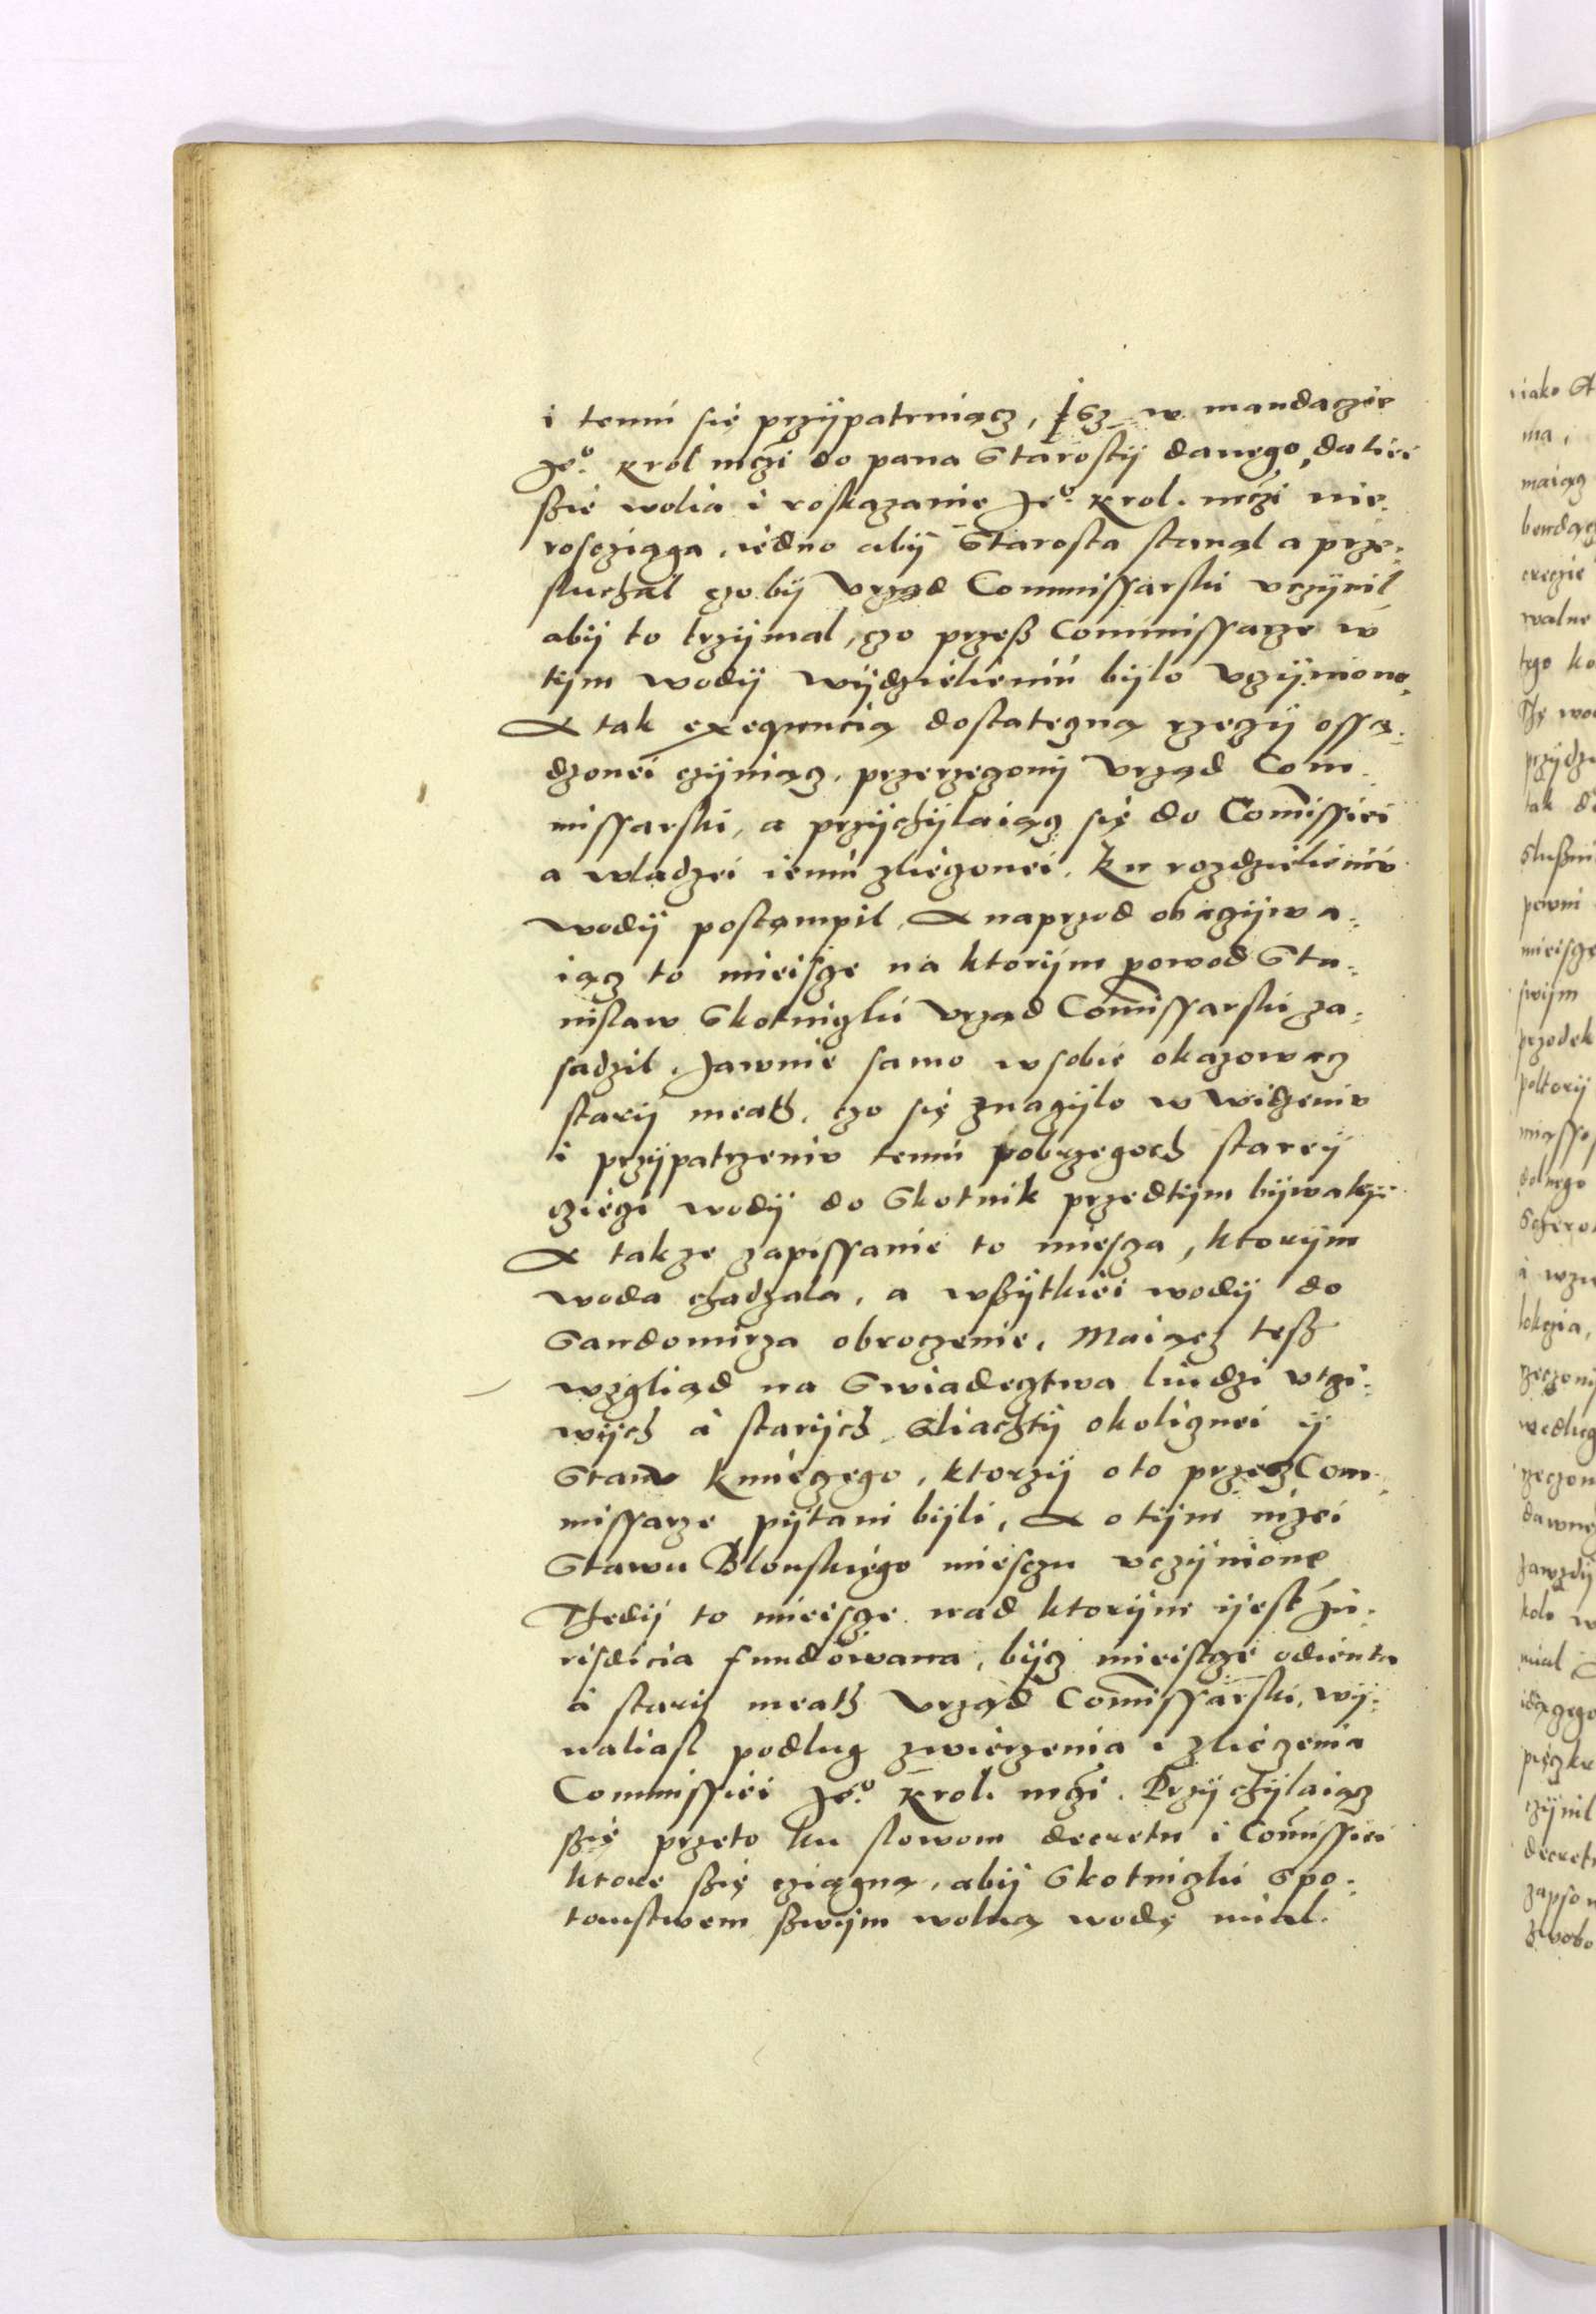 i temu się przÿpatruiącz, Isz w mandaczie
Jeͦ. krol mczi do pana Starostÿ danego, daliei
szie wolia i roskazanie Jeͦ. krol. mczi nie.
rosciąga, iedno abÿ Starosta stanąl a prze.
sluchal czo bÿ Vrząd Commissarski vczÿnil
abÿ to trzÿmal, czo przeß Commissarze w
tÿm wodÿ wÿdzieleniu bÿlo vczÿniono.
A tak exequucią dostateczną rzeczÿ ossą.
dzonei czÿniącz, przerzeczonÿ Vrząd Com.
missarski, a przÿchÿlaiącz się do Comissiei
a wladzei iemu zlieczonei, Ku rozdzieleniu
wodÿ postąmpil, A naprzod obaczÿwa.
iącz to mieiscze na ktorÿm powod Sta.
nislaw Skotniczki Vrząd Comissarski za.
sadzil, Jawnie samo w sobie okazowacz
starÿ meath, czo się znaczÿlo w widzeniu
i przÿpatrzeniu temu pobrzegoch starey
cziegi wodÿ do Skotnik przedtÿm bÿwalÿ
A takze zapissanie to miescza, ktorÿm
woda chadzala, a wßÿtkiei wodÿ do
Sandomirza obroczenie, Maiącz tesz
wzgliąd na Swiadecztwa liudzi vtzi.
wÿch i starÿch, Sliachtÿ okolicznei ÿ
Stanu kmieczego, ktorzÿ o to przez Com.
missarze pÿtani bÿli, A o tÿm nizei
Stawu Blonskiego miesczu vczÿnione
Thedÿ to mieiscze nad ktorÿm ÿest Ju.
risdicia fundowana, bÿcz mieiscze odienta
i starÿ meath Vrząd Comissarski, wÿ.
naliasl podlug zwierzenia i zlieczenia
Commissiei Jeͦ. krol. mczi. Przÿchÿlaiącz
szię przeto ku slowom decretu i Comissiei
ktore szię cziągną, abÿ Skotniczki s po.
tomstwem szwÿm wolną wodę mial.